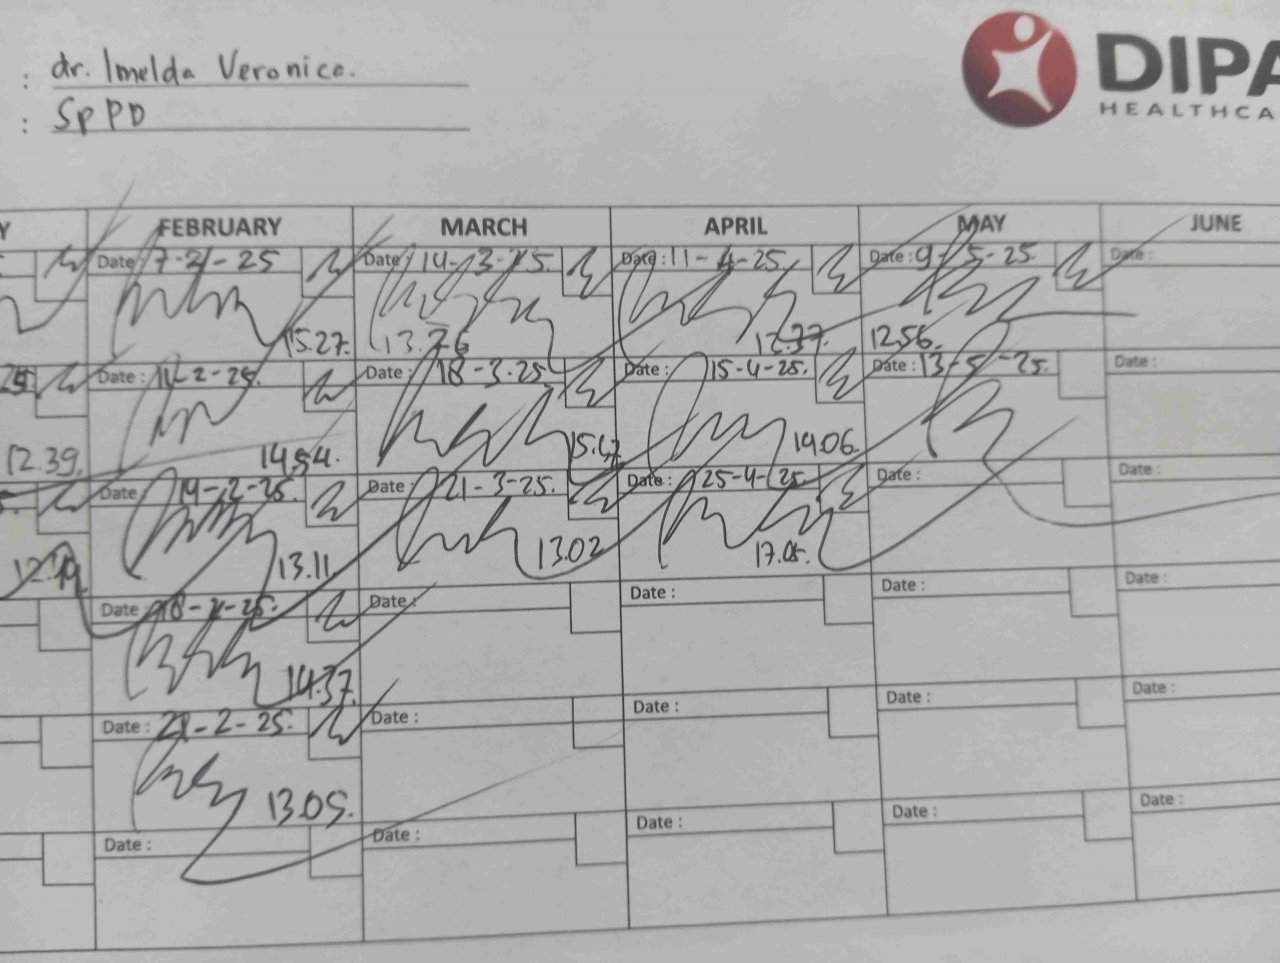 : dr. Imelda Veronica.
: SpPD
DIPA
HEALTHCA
Y FEBRUARY MARCH APRIL MAY JUNE
Date : 7-2-25 Date : 14-3-25. Date : 11-4-25. Date : 9-5-25. Date :
15.27. 13.26 12.37. 12.56.
25 Date : 11-2-25. Date : 18-3-25 Date : 15-4-25. Date : 13-5-25. Date :
12.39. 14.54. 14.06.
Date : 14-2-25. Date : 21-3-25. Date : 25-4-25. Date : Date :
13.11 13.02 17.05.
Date : 18-2-25. Date : Date : Date : Date :
14.37.
Date : 21-2-25. Date : Date : Date : Date :
13.05.
Date : Date : Date : Date : Date :